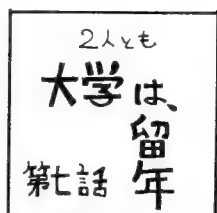 2人とも
大学は、
留年
第七話